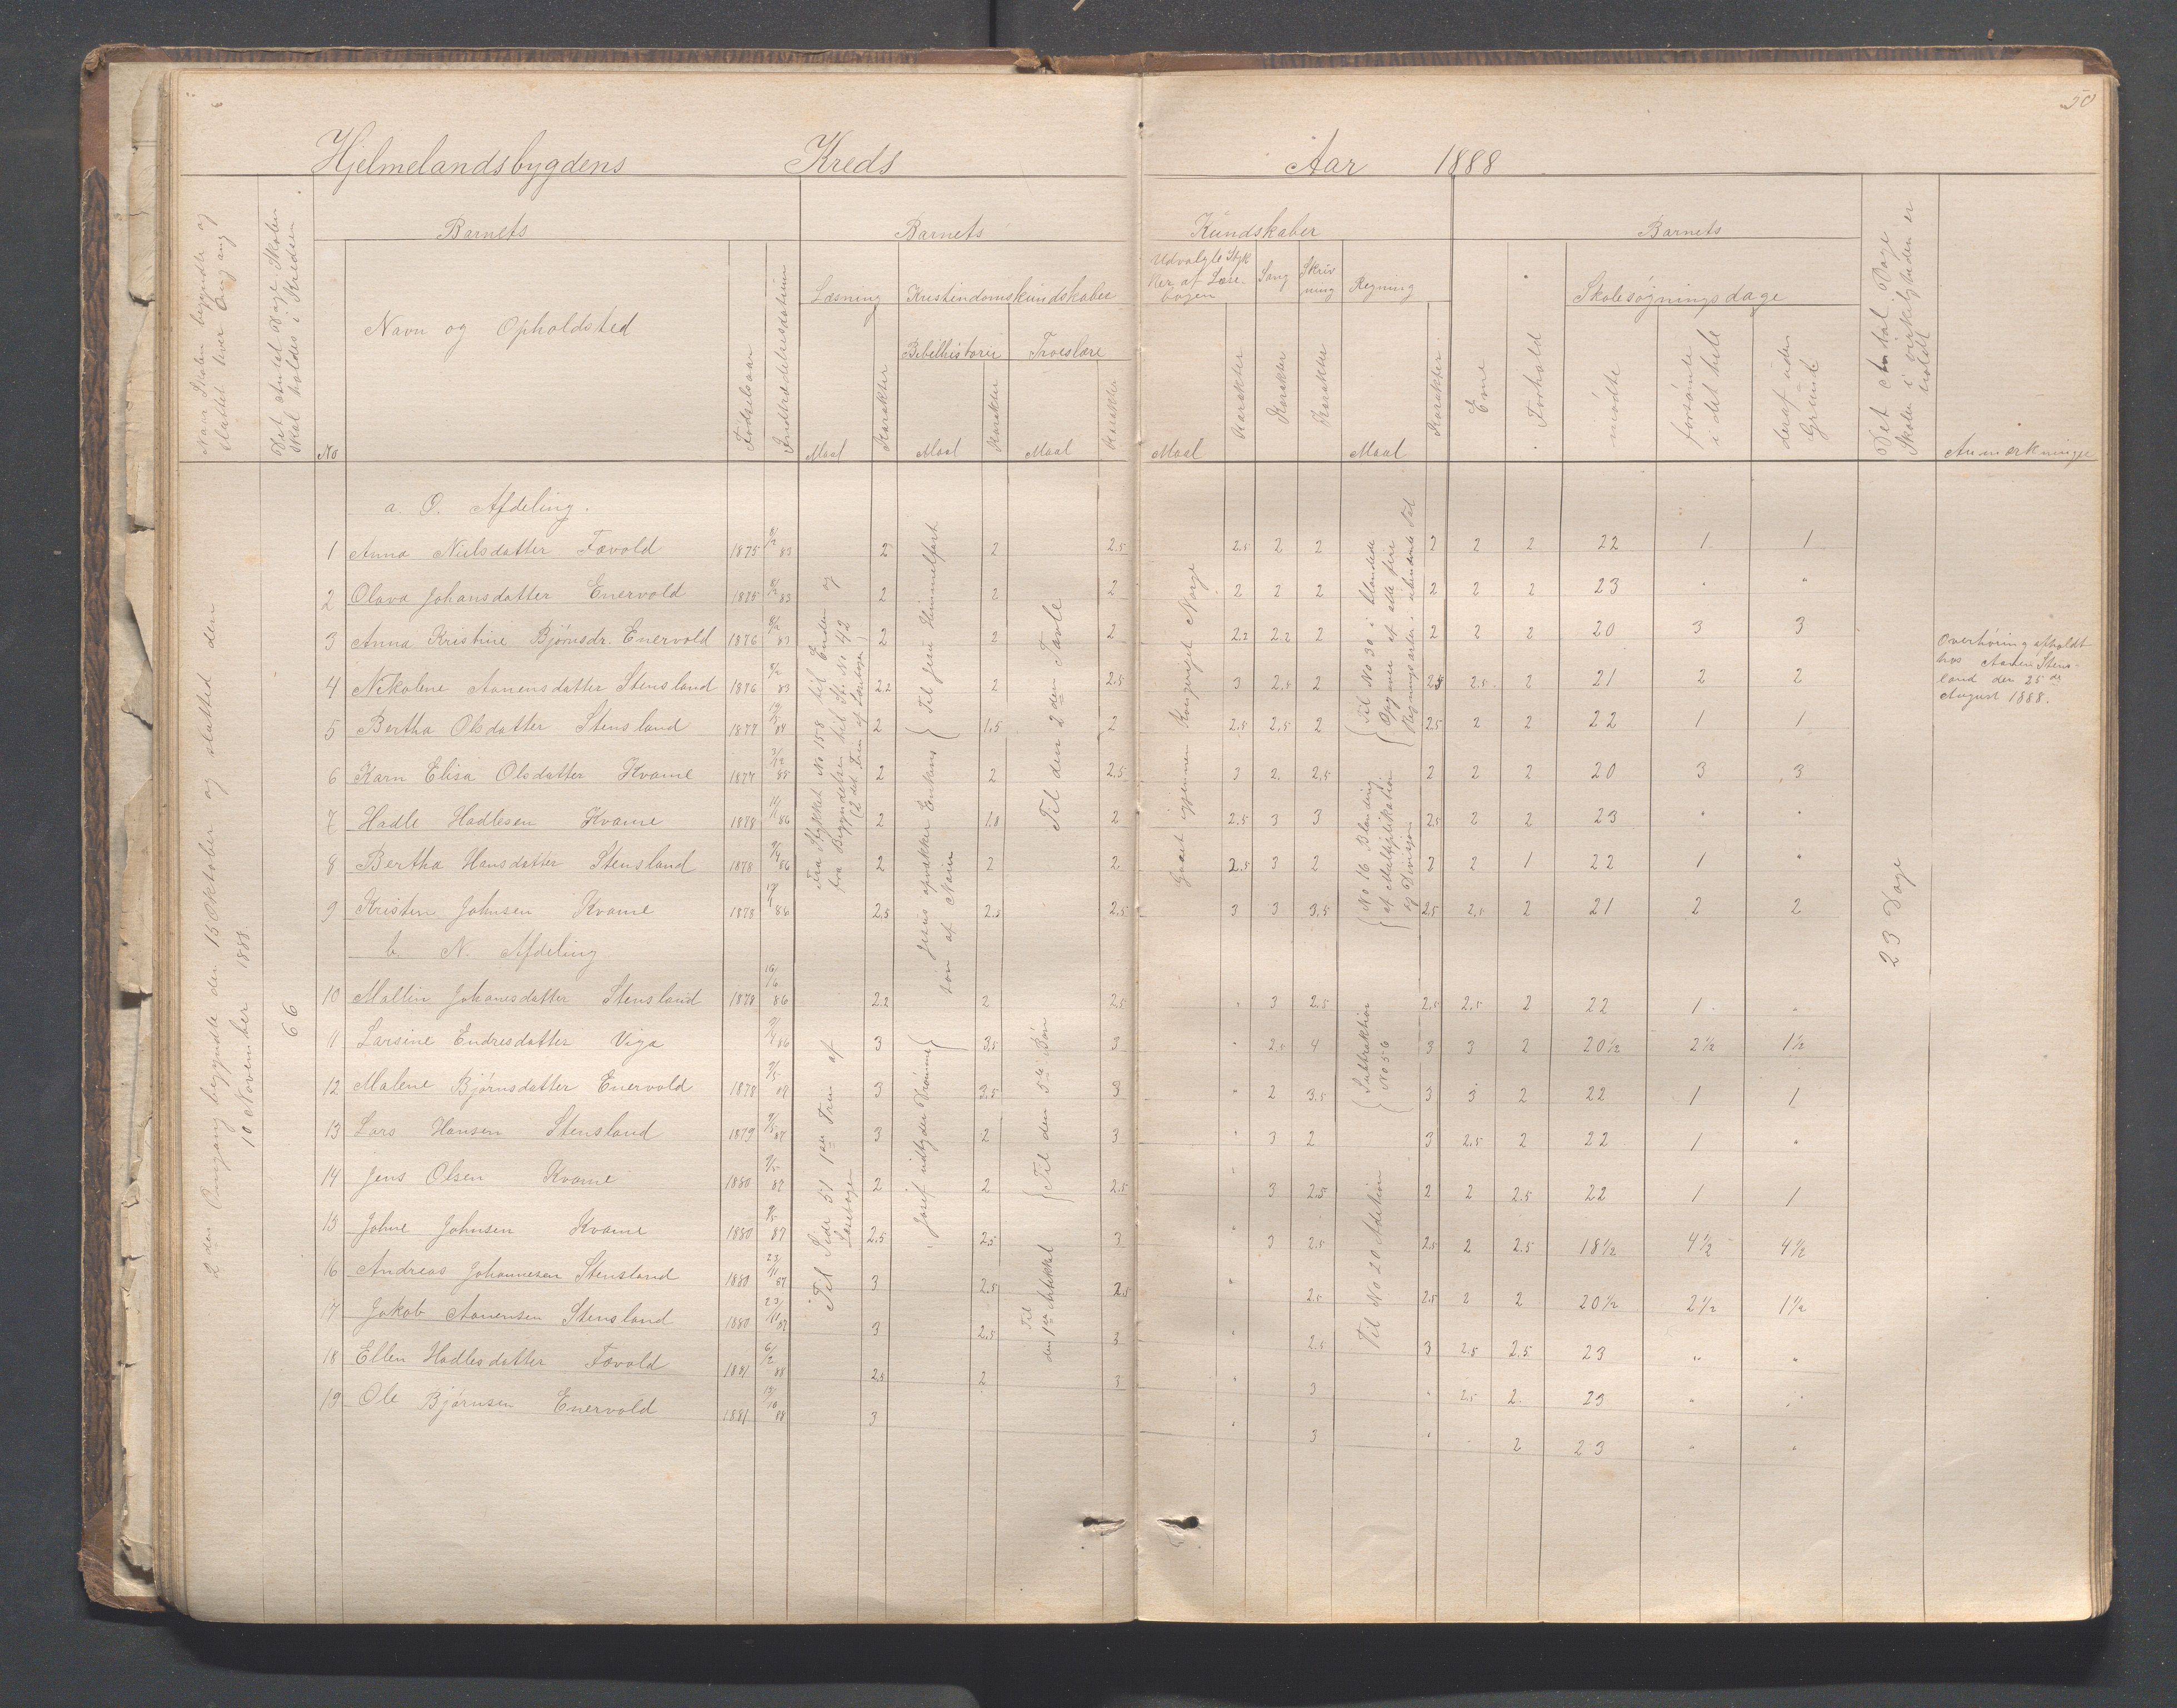 50
Hjelmelandsbygdens Kreds Aar 1888
Naar Skolen begyndte og sluttet hver Omgang
Det Antal Dage Skolen skal holdes i Kredsen
Barnets
Barnets
Kundskaber
Barnets
No
Navn og Opholdsted
Fødselsaar
Indtrædelsesdatum
Læsning
Kristindomskundskaber
Bibelhistorie
Troeslære
Udvalgte Stykker af Læsebogen
Sang
Skrivning
Regning
Evne
Forhold
Skolesøgningsdage
mødte
forsømte i det hele
deraf uden Grund
Det Antal Dage Skolen i virkeligheden er holdt
Anmærkninger
Maal Karakter Maal Karakter Maal Karakter
Maal Karakter Karakter Karakter Maal Karakter
2den Omgang begyndte den 15 Oktober og slutted den
10 November 1888
66
a. O. Afdeling.
1 Anna Nielsdatter Fævold 1875 8/2 83 2 2 2.5 2.5 2 2 2 2 2 22 1 1
2 Olava Johansdatter Enervold 1875 8/2 83 2 2 2 2 2 2 2 2 2 23 " "
3 Anna Kristine Bjørnsdr. Enervold 1876 8/2 83 2 2 2 2.2 2.2 2 2 2 2 20 3 3
4 Nikoline Aanensdatter Stensland 1876 8/2 83 2.2 2 2.5 3 2.5 2 2.5 2.5 2 21 2 2
5 Bertha Olsdatter Stensland 1877 84 2 1.5 2 2.5 2.5 2 2.5 2 2 22 1 1
6 Karn Elisa Olsdatter Kvame 1877 85 2 2 2.5 3 2 2.5 2 2 2 20 3 3
7 Hadle Hadlesen Kvame 1878 86 2 1.8 2 2.5 3 3 2.5 2 2 23 " "
8 Bertha Hansdatter Stensland 1878 86 2 2 2 2.5 3 2 2 2 1 22 1 "
9 Kristen Johnsen Kvame 1878 86 2.5 2.5 2.5 3 3 3.5 2.5 2.5 2 21 2 2
b. N. Afdeling
10 Maltin Johanesdatter Stensland 1878 86 2.2 2 2.5 " 3 2.5 2.5 2.5 2 22 1 "
11 Larsine Endresdatter Viga 86 3 3.5 3 " 2.5 4 3 3 2 20½ 2½ 1½
12 Malene Bjørnsdatter Enervold 1878 9/5 87 3 3.5 3 " 2 3.5 3 3 2 22 1 1
13 Lars Hansen Stensland 1879 9/5 87 3 2 3 " 3 2 3 2.5 2 22 1 "
14 Jens Olsen Kvame 1880 9/5 87 2 2 2.5 " 3 2.5 2 2 2.5 22 1 1
15 Johne Johnsen Kvame 1880 9/5 87 2.5 2.5 3 " 3 2.5 2.5 2 2.5 18½ 4½ 4½
16 Andreas Johannesen Stensland 1880 23/11 87 3 2.5 2.5 " 2.5 2.5 2 2 20½ 2½ 1½
17 Jakob Aanensen Stensland 1880 23/11 87 3 2.5 3 " 2.5 3 2.5 2.5 23 " "
18 Ellen Hadlesdatter Fævold 1881 6/2 88 2.5 2 3 " 3 " 2.5 2. 23 " "
19 Ole Bjørnsen Enervold 1881 15/10 88 3 " 3 " 2 23 " "
Fra Stykket No 158 til Enden og
fra Begyndelsen til St. No 42
(2 det Trin af Læsebogen)
Til Side 51 1ste Trin af
Læsebogen
Til Jesu Himmelfart
Jesus opvækker Enkens
søn af Nain
Josef udtyder Drømme
Til den 2den Tavle
Til den 5te Bøn
Til
den 1ste Artikkel
Gaaet igjennem Kongeriget Norge
Til No 30 i blandede
Opgaver af alle fire
Regningsarter i ubenævnte Tal
No 16 Blanding
af Multiplikation
og Division
Subtraktion
No 56
Til No 20 Adition
23 Dage
Overhøring afholdt
hos Aanen Stens-
land den 25de
August 1888.